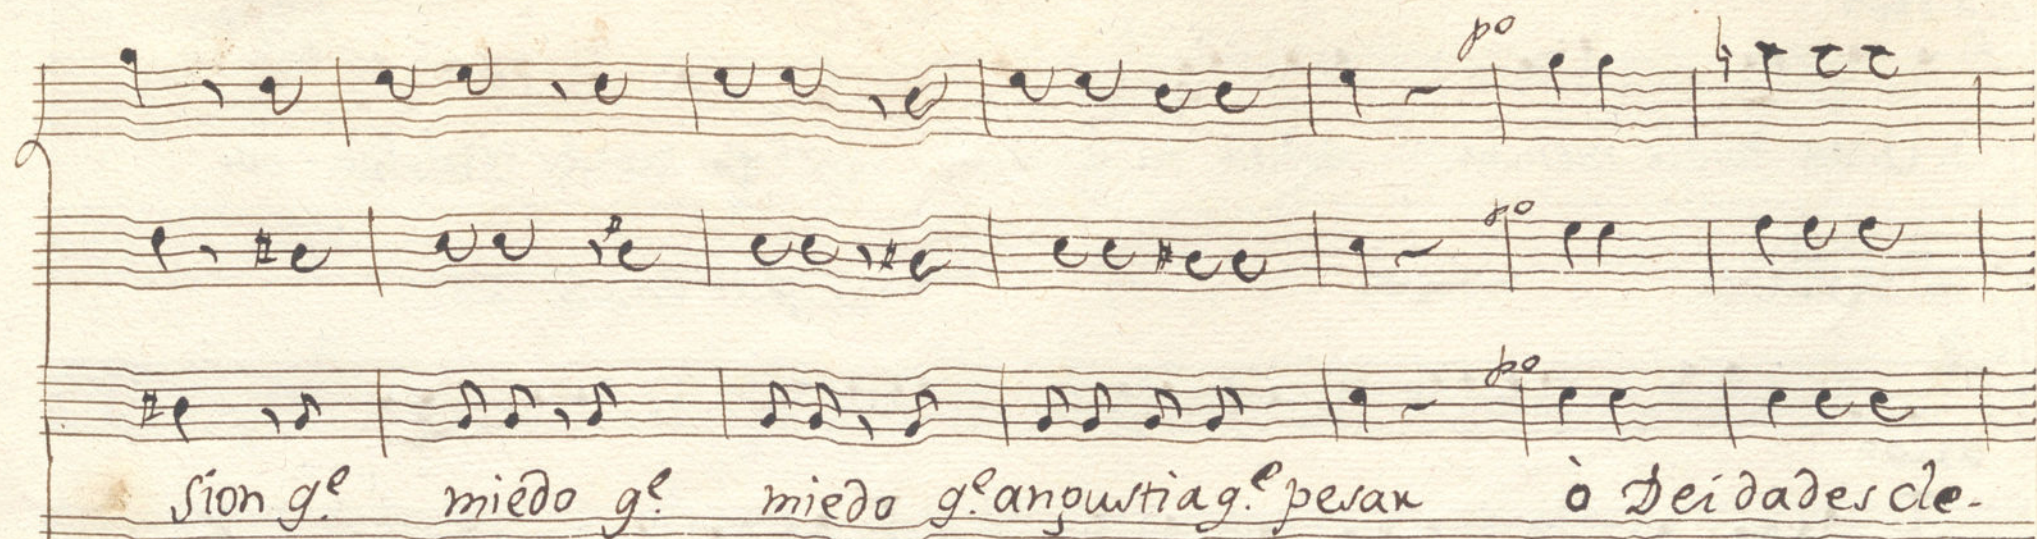 po
po
po
sion q.e miedo q.e miedo q.e angustia q.e pesar ò Deidades cle-